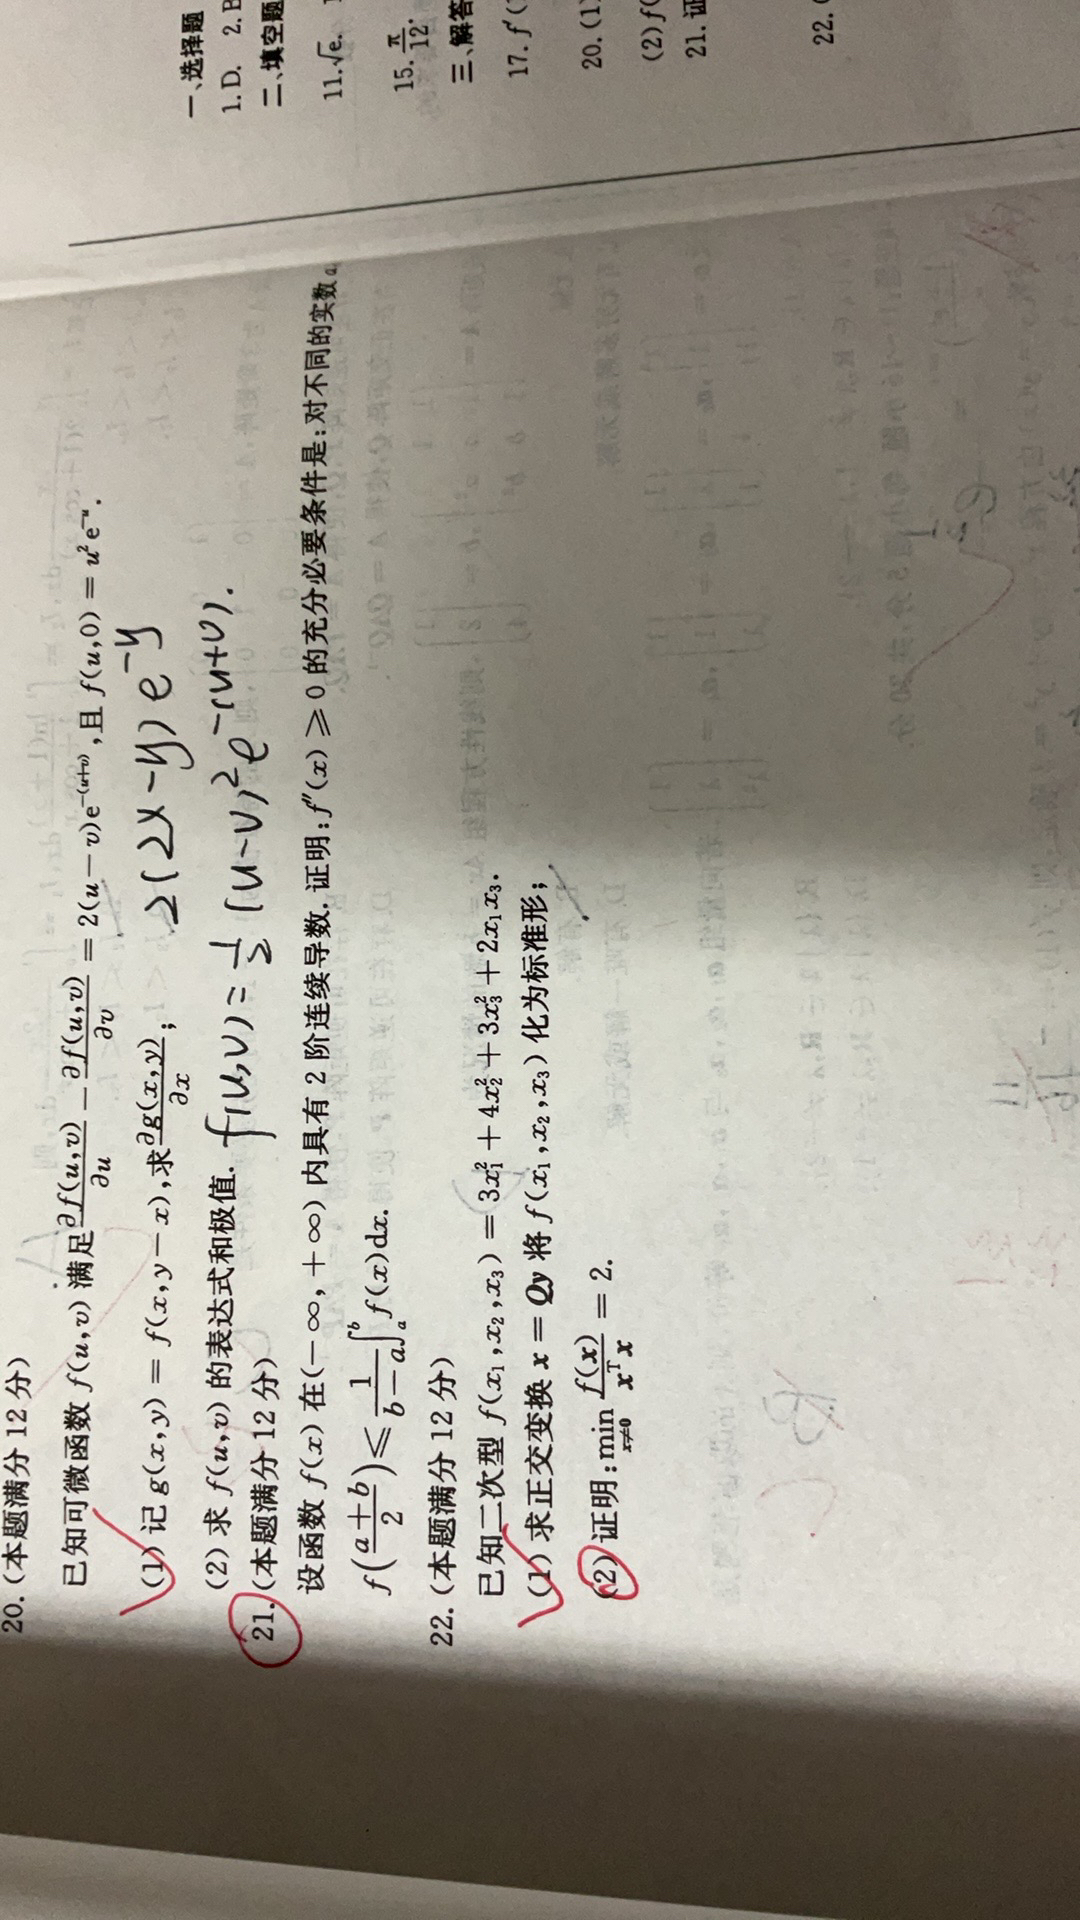 20. (本题满分 12 分)
已知可微函数 f(u,v) 满足 ∂f(u,v)/∂u − ∂f(u,v)/∂v = 2(u − v)e^{−(u+v)}, 且 f(u,0) = u²e^{−u}.
(1) 记 g(x,y) = f(x,y − x), 求 ∂g(x,y)/∂x; 2(2x−y)e^{−y}
(2) 求 f(u,v) 的表达式和极值. f(u,v) = 1/2 (u−v)²e^{−(u+v)}.
21. (本题满分 12 分)
设函数 f(x) 在(− ∞, + ∞) 内具有 2 阶连续导数. 证明: f″(x) ⩾ 0 的充分必要条件是: 对不同的实数
f((a+b)/2) ⩽ 1/(b−a) ∫_a^b f(x)dx.
22. (本题满分 12 分)
已知二次型 f(x₁,x₂,x₃) = 3x₁² + 4x₂² + 3x₃² + 2x₁x₃.
(1) 求正交变换 x = Qy 将 f(x₁,x₂,x₃) 化为标准形;
(2) 证明: min_{x≠0} f(x)/(xᵀx) = 2.
一、选择题
1. D. 2. B
二、填空题
11. √e.
15. π/12.
三、解答
17. f′(
20. (1)
(2) f(
21. 证
22. (